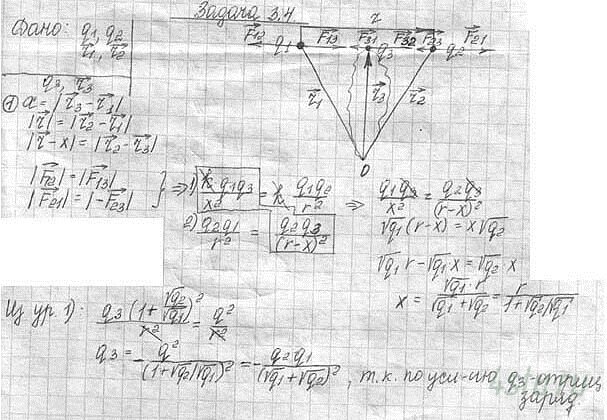 Задача 3.4
Дано: q1, q2
r⃗1, r⃗2
q3, r⃗3
r
F⃗12 F⃗13 F⃗31 F⃗32 F⃗23 F⃗21
q1 q3 q2
r⃗1 r⃗3 r⃗2
0
① x = |r⃗3 - r⃗1|
|r⃗| = |r⃗2 - r⃗1|
|r⃗ - x| = |r⃗2 - r⃗3|
|F⃗12| = |F⃗13|
|F⃗21| = |-F⃗23|
} ⇒ 1) k q1q3/x² = k q1q2/r² ⇒ q1q3/x² = q2q3/(r-x)²
2) q2q1/r² = q2q3/(r-x)²
√q1 (r-x) = x√q2
√q1 r - √q1 x = √q2 · x
x = √q1 · r/(√q1 + √q2) = r/(1+√q2/√q1)
Из ур 1): q3(1+√q2/√q1)²/r² = q²/r²
q3 = - q²/(1+√q2/√q1)² = - q2q1/(√q1+√q2)², т.к. по усл-ию q3-отриц
заряд